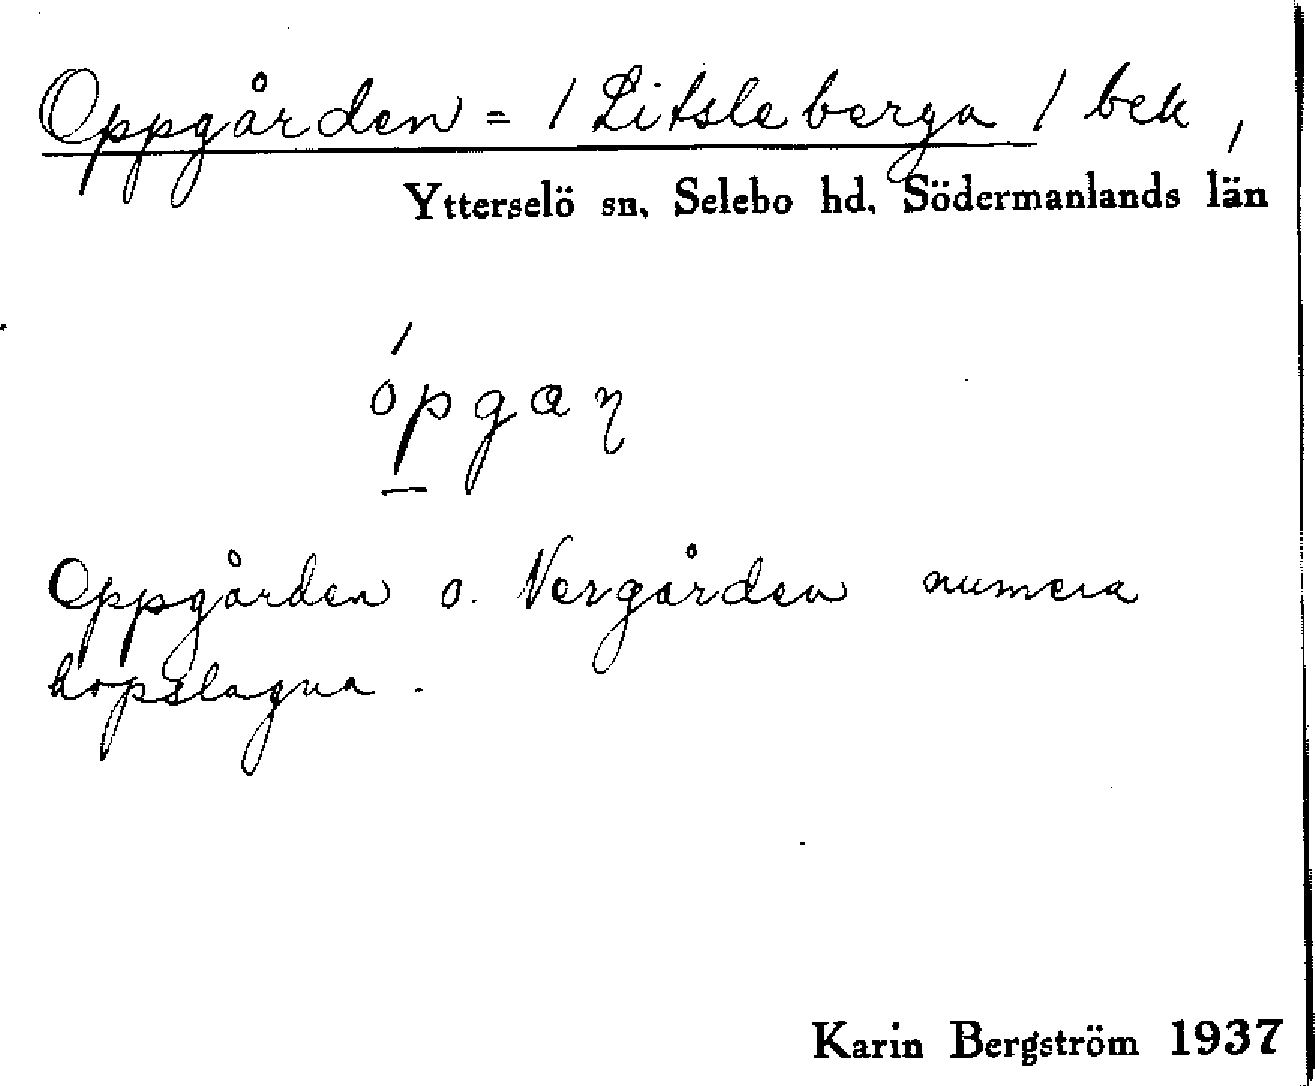 Oppgården = / Litsleberga / bek,
Ytterselö sn. Selebo hd. Södermanlands län
ópgaɳ
Oppgården o. Nergården numera
hopslagna.
Karin Bergström 1937